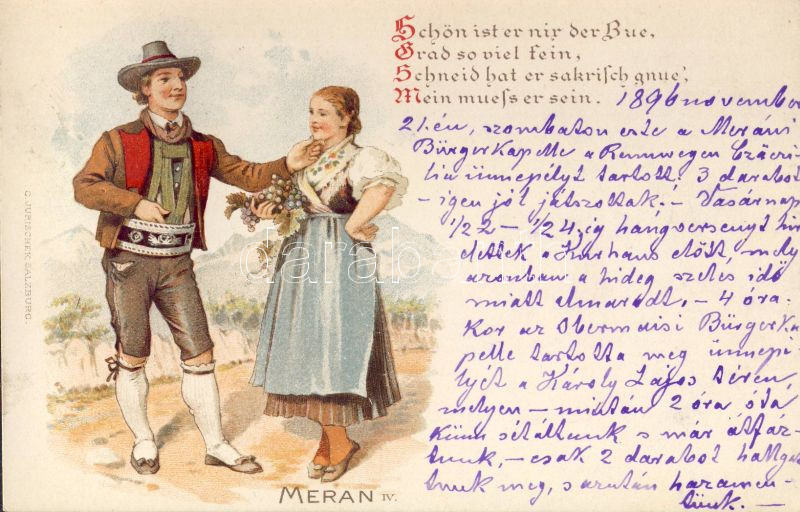 Schön ist er nir der Bue,
Grad so viel fein,
Schneid hat er sakrisch gnue,
Mein muess er sein.
1896 november
21.én, szombaton este a Meráni
Bürgerkapelle a Rennwegen Czäcri-
lia ünnepélyt tartott, 3 darabot
- igen jól játszottak. - Vasárnap
1/22 - 1/24.ig hangversenyt hir
dettek a Kurhaus előtt, mely
azonban a hideg szeles idő
miatt elmaradt. - 4 óra-
kor az Obermaisi Bürgerka
pelle tartotta meg ünnepé-
lyét a Károly Lajos téren,
melyen - miután 2 óra óta
künn sétáltunk s már átfáz-
tunk, - csak 2 darabot hallgat
tunk meg, s azután hazamen-
tünk. -
C. JURISCHEK, SALZBURG.
MERAN IV.
darabanth